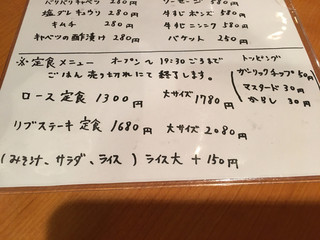 パリパリキャベツ 280円 ソーセージ 580円
塩ダレキュウリ 280円 牛すじポン酢 580円
キムチ 280円 牛すじニンニク 580円
キャベツの酢漬け 280円 バケット 250円
※定食メニュー オープン〜19:30ごろまで
ごはん売り切れにて終了します。
トッピング
ガーリックチップ 50円
マスタード 30円
からし 30円
ロース定食 1300円 大サイズ 1780円
リブステーキ定食 1680円 大サイズ 2080円
(みそ汁、サラダ、ライス) ライス大 +150円